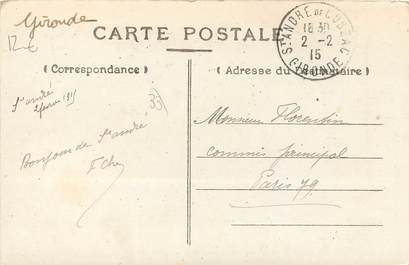 Gironde
12 €
CARTE POSTALE
ST ANDRE DE CUBZAC
18 30
2 - 2
15
GIRONDE
(Correspondance)
(Adresse du Destinataire)
33
St André
2 février 1915
Bonjour de St André
Monsieur Florentin
commis principal
Paris 79